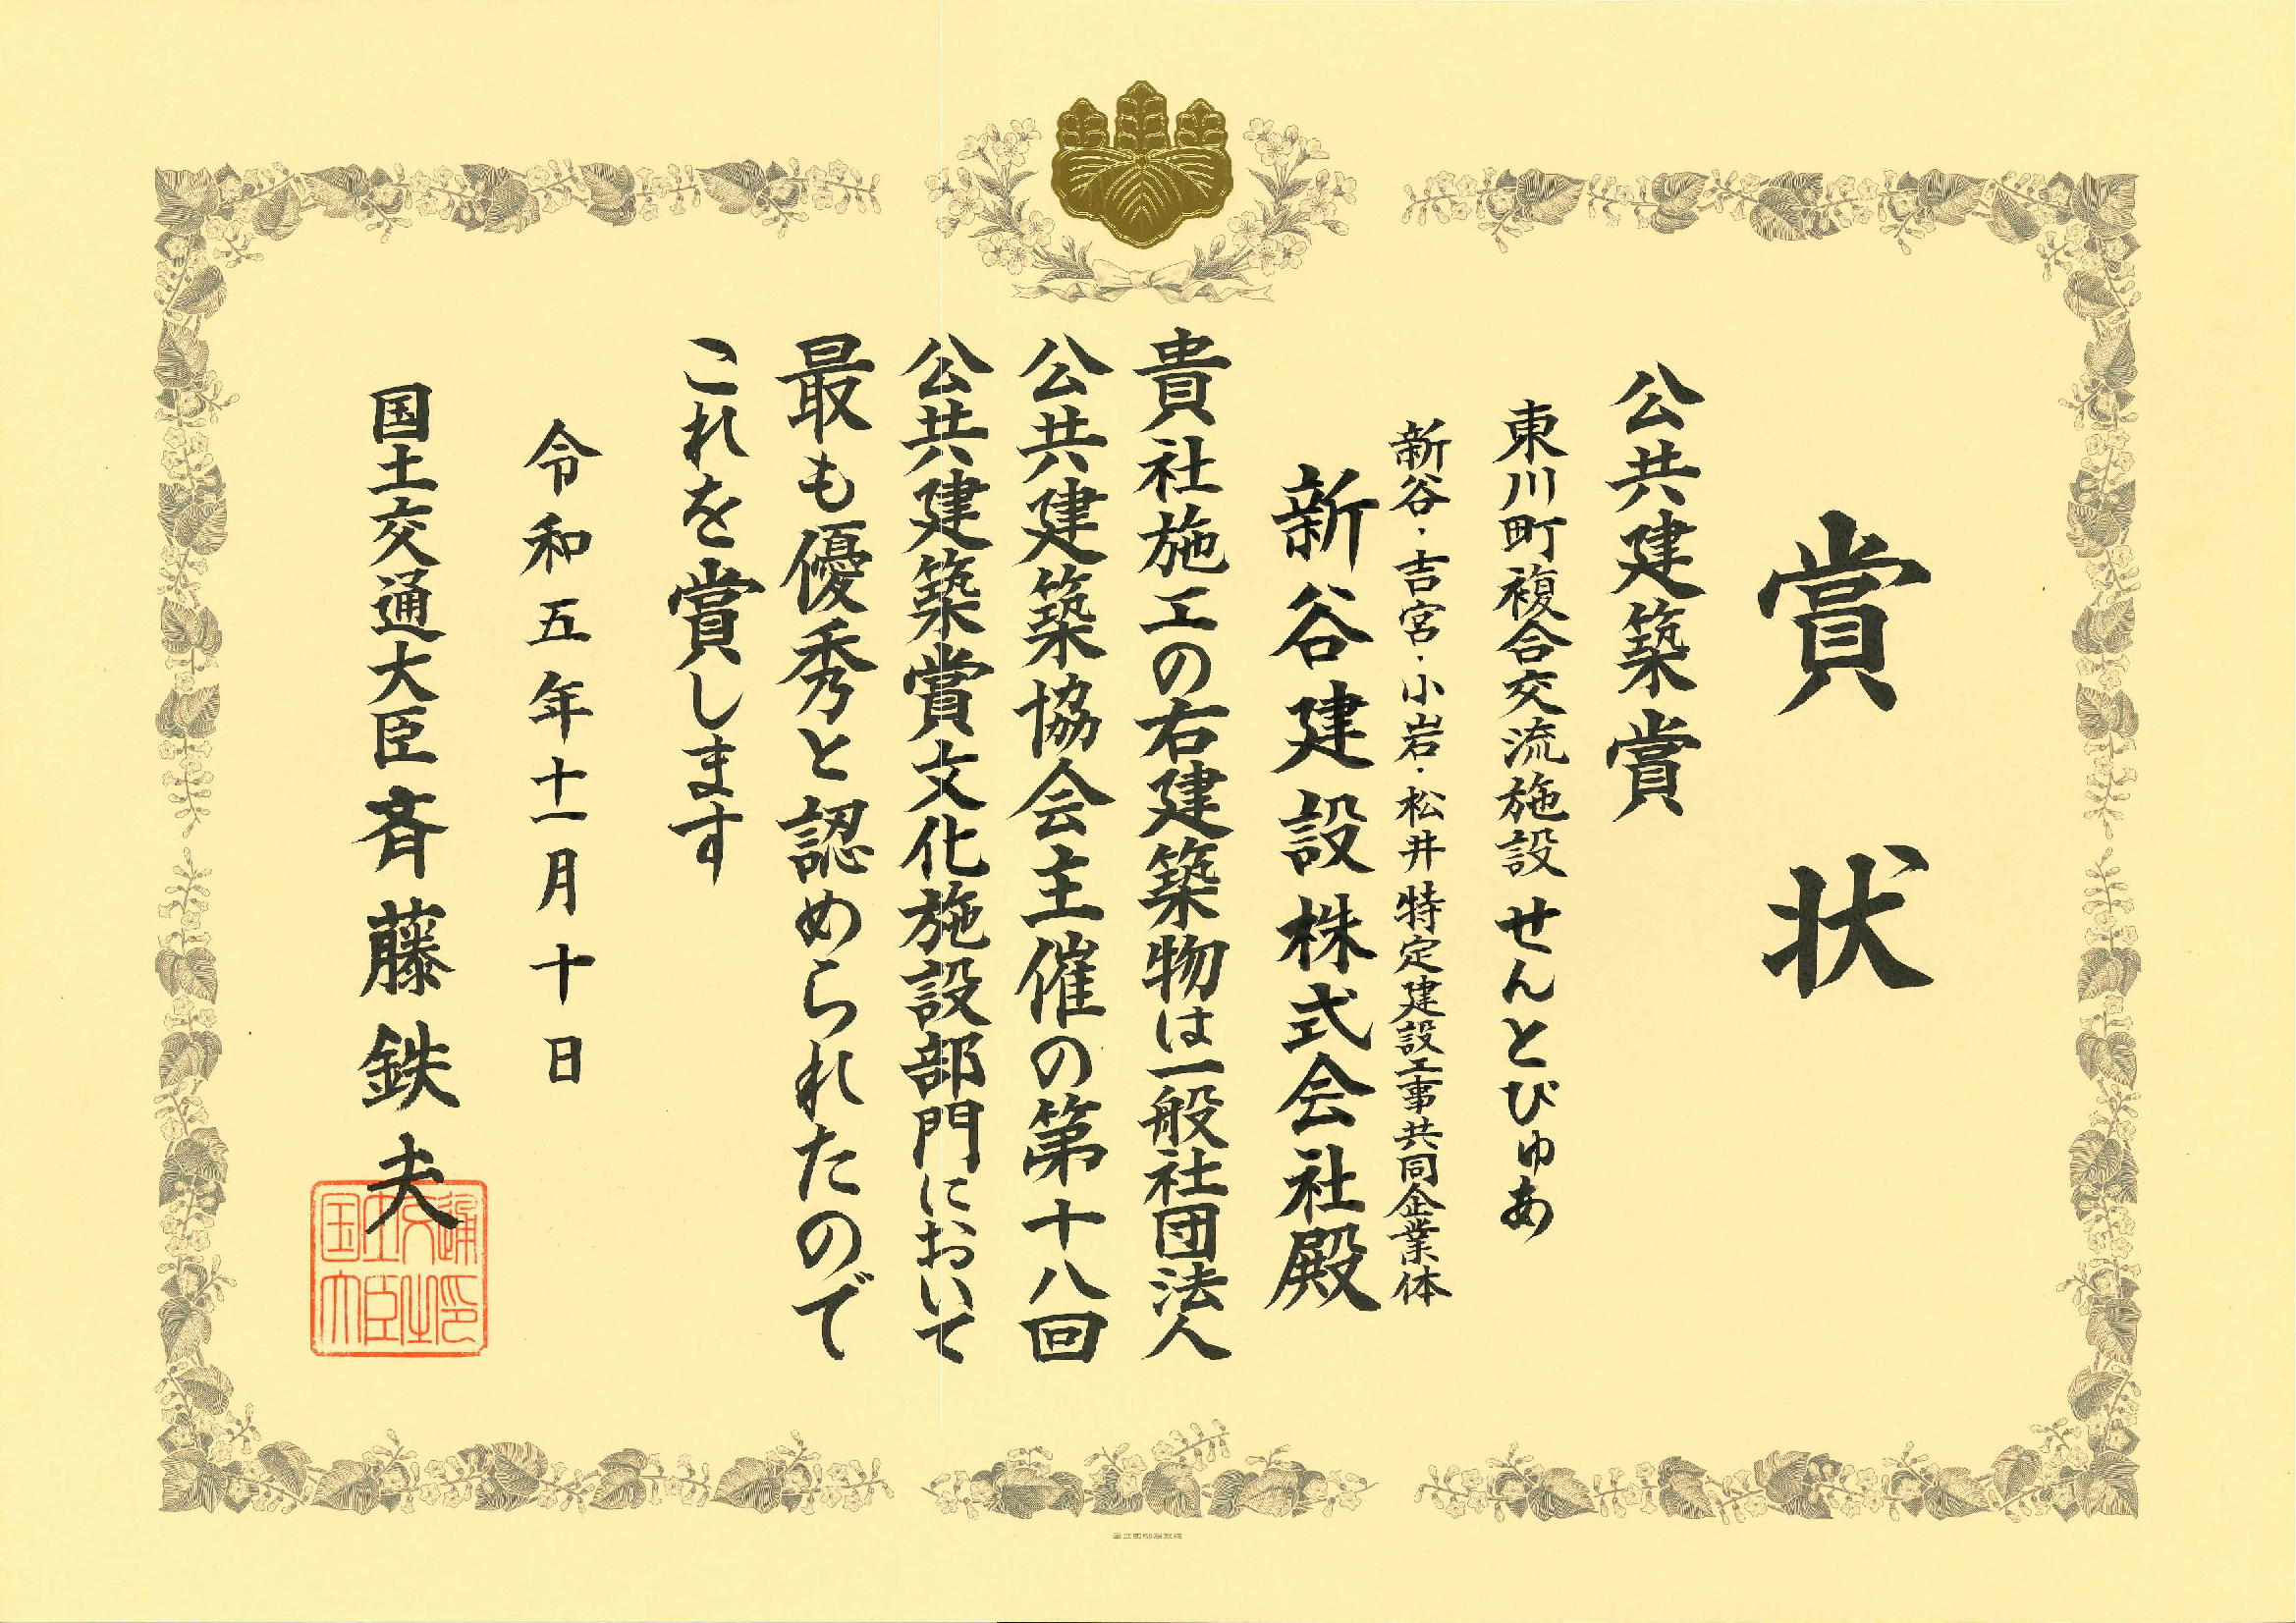 賞状
公共建築賞
東川町複合交流施設せんとぴゅあ
新谷・吉宮・小岩・松井特定建設工事共同企業体
新谷建設株式会社殿
貴社施工の右建築物は一般社団法人
公共建築協会主催の第十八回
公共建築賞文化施設部門において
最も優秀と認められたので
これを賞します
令和五年十一月十日
国土交通大臣斉藤鉄夫
国土交通
大臣之印